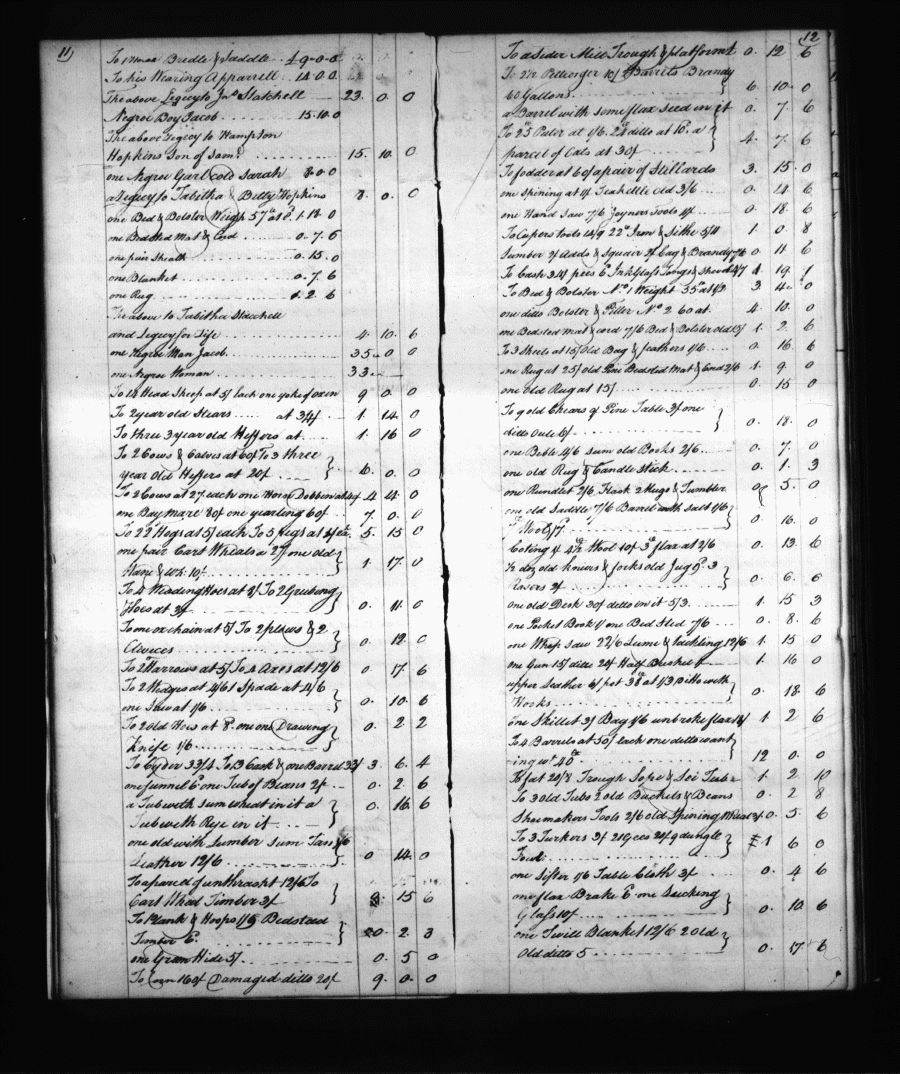 11
To 1 Horse Bredle & Saddle £9-0-0
To his Wearing Apparrell 14 0 0
The above Legecy to Jnº Statchell 23. 0. 0
Negroe Boy Jacob 15.10.0
The above Legecy to Hampton
Hopkins Son of Saml 15. 10. 0
one Negroe Garl cold Sarah 8-0-0
a Legecy to Tabitha & Betty Hopkins 8. 0. 0
one Bed & Bolster Weigh 57 at 8. 1.18.0
one Bedsted Mat & Cord 0. 7. 6
one pair Sheath 0. 15. 0
one Blanket 0. 7. 6
one Rug 1. 2. 6
The above to Tabitha Statchell
and Legecy for Life 4. 10. 6
one Negroe Man Jacob 35. 0 0
one Negroe Woman 33
To 14 Head Sheep at 5/ each one yoke of oxen 9 0. 0
To 2 year old Stears at 34/ 1. 14. 0
To three 3 year old Heffers at 1. 16 0
To 2 Cows & Calves at 60/ To 3 three
year Old Heffers at 20/ 6. 0. 0
To 2 Cows at 27. each one Horse Dobben at 4. 4. 0
one Bay Mare 80/ one yearling 60/ 7. 0. 0
To 22 Hogs at 5/ each To 5 Pigs at 5. 15 0
one pair Cart Wheals a 27/ one old
& Wh: 10/ 1. 17. 0
To 4 Weading Hoes at 2/ To 2 Grubing
Hoes at 3/ 0. 11. 0
To one ox chain at 5/ To 2 plows & 2
Clevices 0. 12. 0
To 2 Harrows at 5/ To 4 Axes at 12/6 0. 17. 6
To 2 Wedges at 4/6 1 Spade at 4/6
one Saw at 1/6 0. 10. 6
To 2 old Hows at 8d. one Drawing
Knife 1/6 0. 2. 2
To Cyder 33/4 To 13 Cask & one Barrel 33/ 3. 6. 4
one funnel 6d one Tub of Beans 2/ 0. 2. 6
a Tub with sum wheat in it a
Tub with Rye in it 0. 16. 6
one old with Lumber Sum Tan
Leather 12/6 0 14. 0
To a parsel of unthrasht 12/6 To
Cart Wheal Timber 3/ 15 6
To Plank & Hoops 1/9 Bedstead
Timber 6d 0. 2. 3
one Gran Hide 5/ 0. 5 0
To Corn 160/ Damaged ditto 20/ 9. 0. 0
12
To a Sider Mill Trough & platformt 0. 12 6
To 2½ 10/ Barrils Brandy
60 Gallons 6. 10. 0
a Barrel with some flax seed in it 0. 7. 6
To 25 Puter at 1/6. 24 ditto at 10d. a
parcel of Oats at 30/ 4. 7. 6
To fodder at 60/ a pair of Stillards 3. 15. 0
one Spining at 1/ Teakettle Old 3/6 0. 14 6
one Hand Saw 7/6 Joyners Tools 0. 18. 6
To Cupers tools 14/9 22 Iron & Sithe 5/11 1. 0. 8
Lumber 2/ Adds & Squair 2/ Cag & Brandy 7/6 0. 11. 6
To Cash 3 peces 6d Ink Glass Tongs & Shovel 4/7 4. 19. 1
To Bed & Bolster Nº 1 Weight 35 at 3 4. 0
one ditto Bolster & Piller Nº 2 60 at 4. 10. 0
one Bedsted mat & cord 7/6 Bed & Bolster old 1. 2. 6
To 3 Sheets at 15/ Old Bag & feathers 1/6 0. 16. 6
one Rug at 25/ old Pine Bedsted Mat & Cord 2/6 1. 9. 0
one old Rug at 15/ 0. 15 0
To 9 old Chears 9/ Pine Table 3/ one
ditto Oule 6/ 0. 18. 0
one Bible 4/6 sum old Books 2/6 0. 7. 0
one old Rug & Candle Stick 0. 1. 3
one Rundlet 2/6 Flask 2 Mugs & Tumbler 0 5. 0
one old Saddle 7/6 Barrel with salt 1/6
Wool 0. 16. 0
Coting 4/ 4½ Wool 10/ 3 flax at 2/6 0. 13. 6
½ doz old knives & forks old Jug 9d. 3
Rasers 2/ 0. 6. 6
one old Desk 30/ ditto in it 5/3 1. 15 3
one Pocket Book 1/ one Bed Sted 7/6 0. 8. 6
one Whop Saw 22/6 Lume & tackling 12/6 1. 15 0
one Gun 15/ ditto 20/ Half Bushel 1/ 1. 16 0
upper Leather 6/ pot 38 at /3 Ditto with
Hooks 0. 18. 6
one Skillet 3/ Bag 1/6 unbroke flax 18/ 1. 2 6
To 4 Barrels at 50/ each one ditto want
ing wt. 40 12 0. 0
To fat 20/8 Trough Sope & Soi Tubs 1. 2. 10
To 3 Old Tubs 2 old Buckets & Beans 0. 2 8
Shoemakers Tools 2/6 old Spining Wheal 3/ 0. 5. 6
To 3 Turkers 3/ 21 Gees 20/ 9 dungle
Foul 1 6 0
one Sifter 1/6 Table Cloth 3/ 0. 4 6
one flax Brake 6d one Lucking
Glass 10/ 0. 10. 6
one Twill Blanket 12/6 2 Old
Old ditto 5 0. 17 6